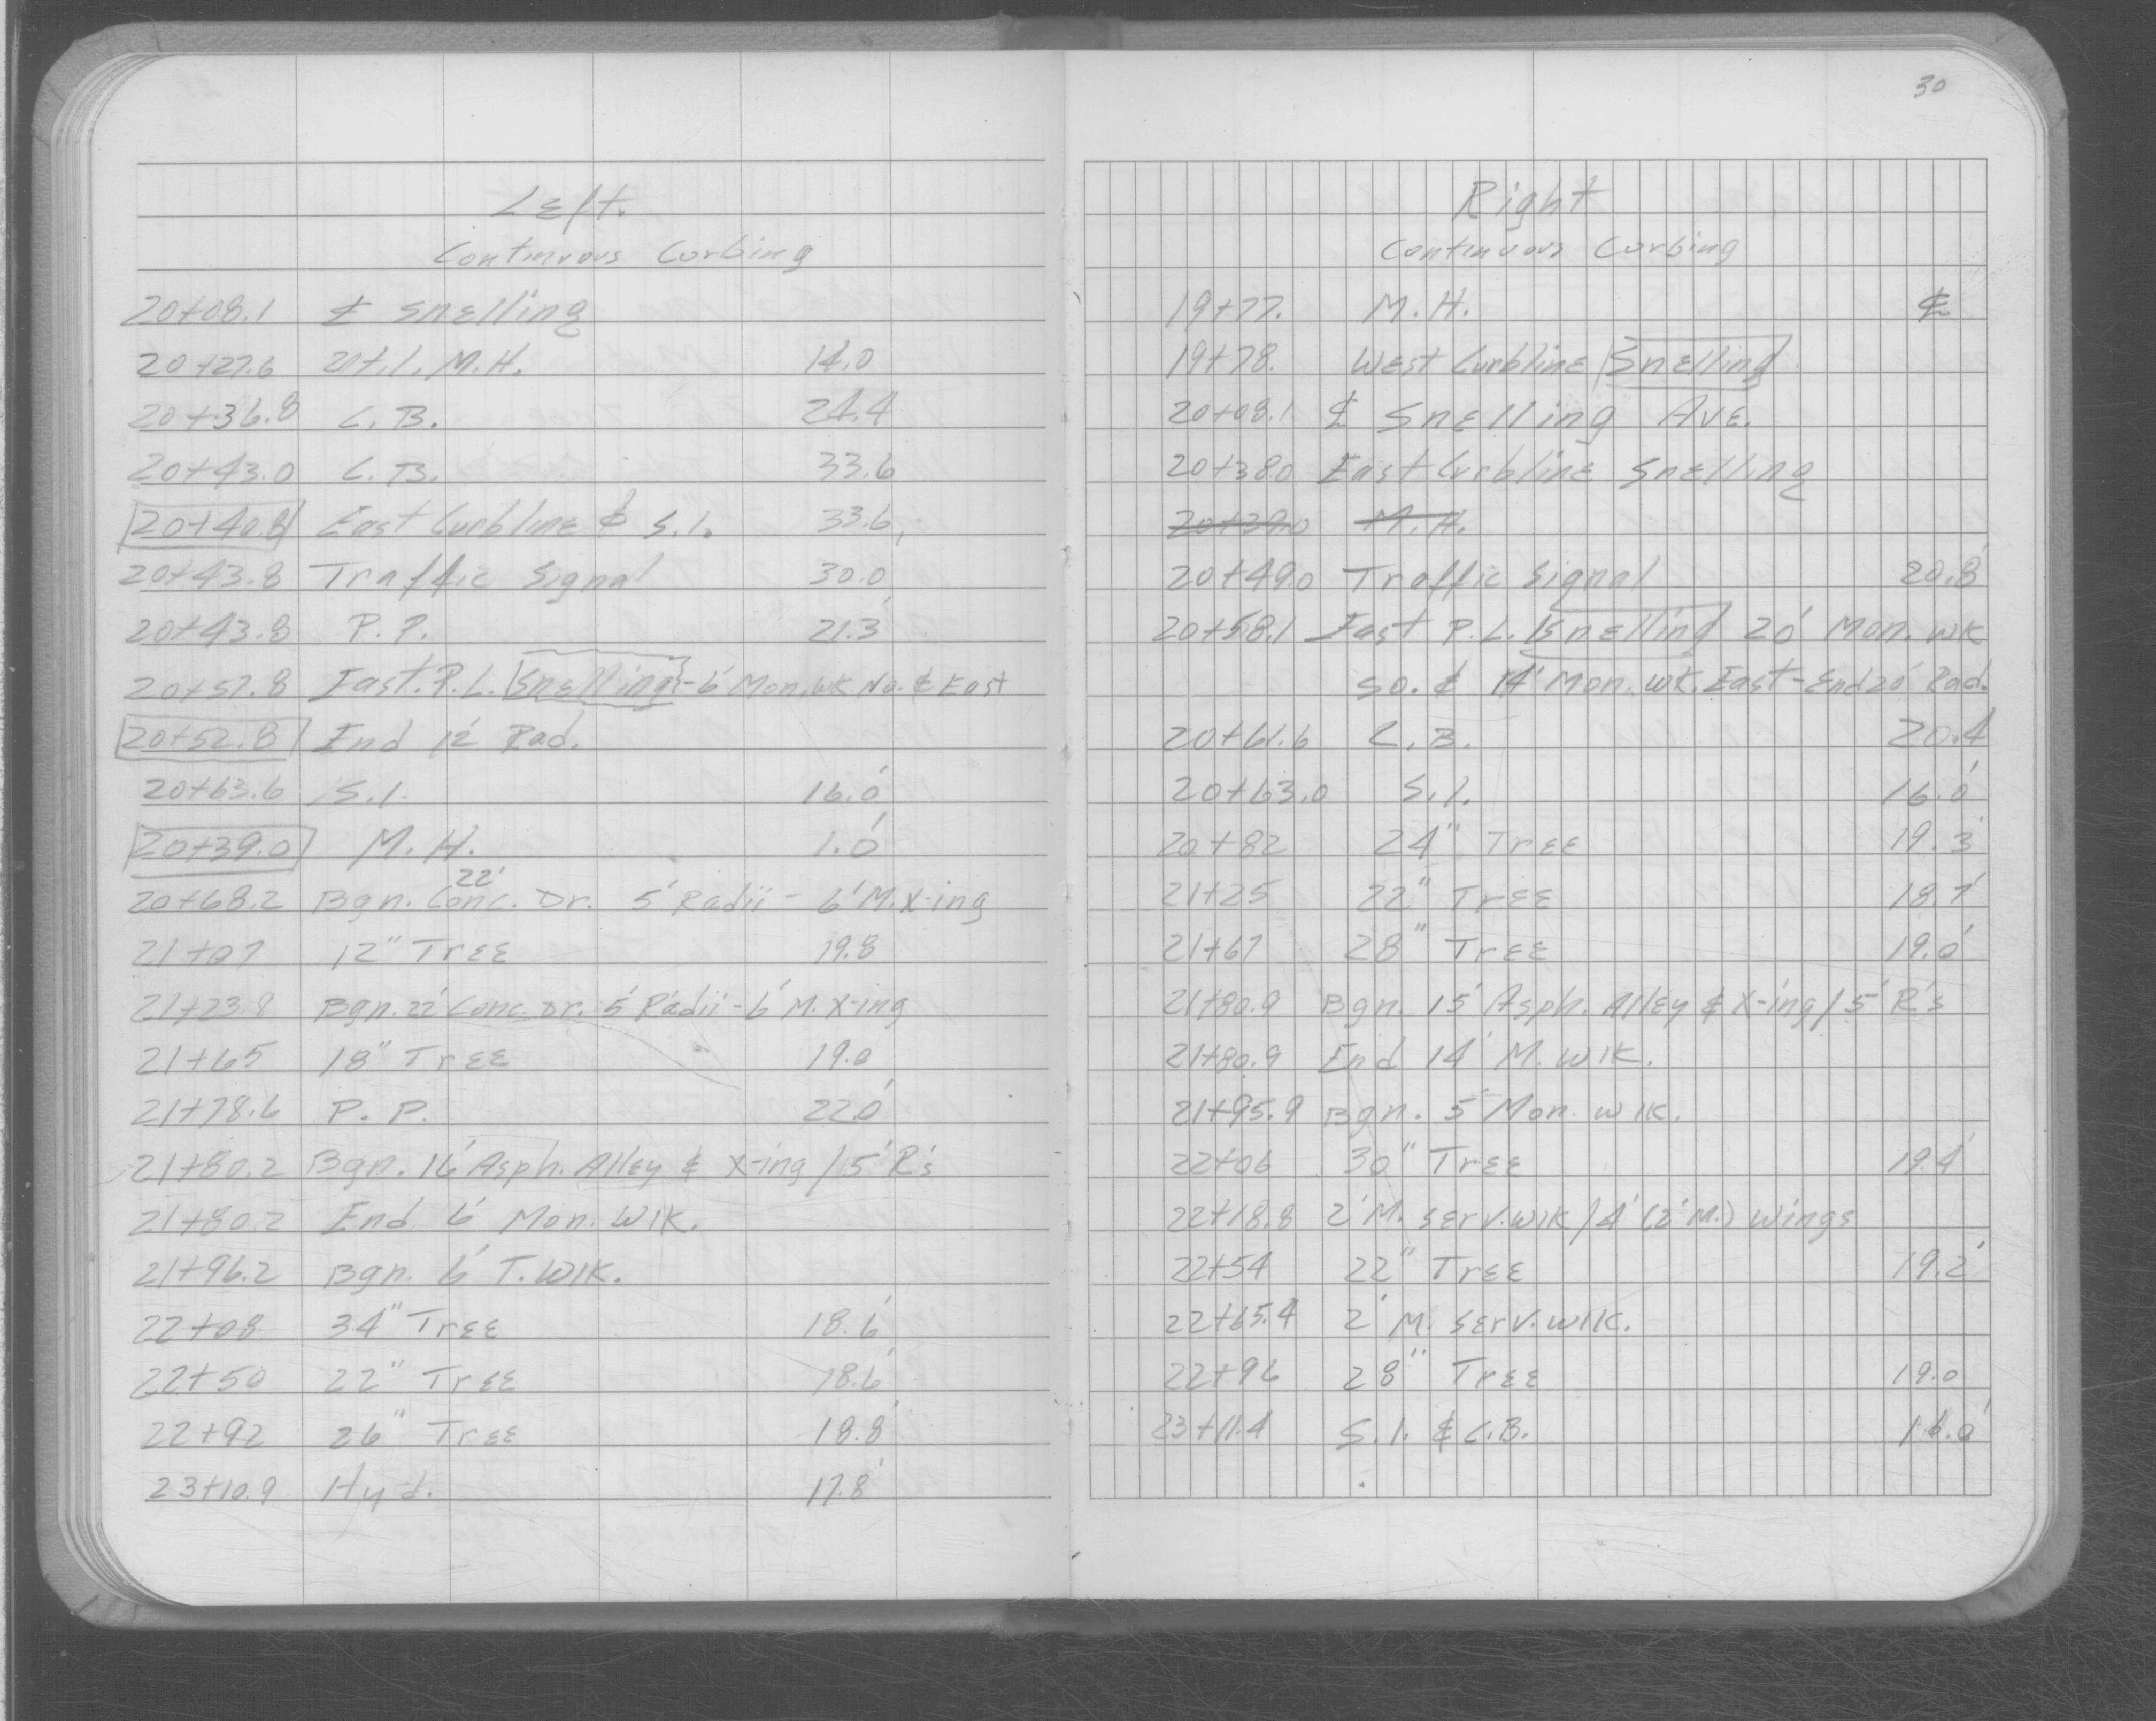 30
Left.
Continuous Curbing
20+08.1 ℄ Snelling
20+27.6 Util. M.H. 14.0
20+36.8 C.B. 24.4
20+43.0 C.B. 33.6
20+40.8 East Curbline & S.I. 33.6
20+43.8 Traffic Signal 30.0
20+43.8 P.P. 21.3'
20+57.8 East. P.L. Snelling - 6' Mon. Wk. No. & East
20+52.8 End 12' Rad.
20+63.6 S.I. 16.0'
20+39.0 M.H. 1.0'
22'
20+68.2 Bgn. Conc. Dr. 5' Radii - 6' M. X-ing
21+07 12" Tree 19.8
21+23.8 Bgn. 22' Conc. Dr. 5' Radii - 6' M. X-ing
21+65 18" Tree 19.0
21+78.6 P.P. 22.0'
21+80.2 Bgn. 16' Asph. Alley & X-ing / 5' R's
21+80.2 End 6' Mon. Wlk.
21+96.2 Bgn. 6' T. Wlk.
22+08 34" Tree 18.6'
22+50 22" Tree 18.6'
22+92 26" Tree 18.8'
23+10.9 Hyd. 17.8'
Right
Continuous Curbing
19+77. M.H. ℄
19+78. West Curbline Snelling
20+08.1 ℄ Snelling Ave.
20+38.0 East Curbline Snelling
20+39.0 M.H.
20+49.0 Traffic Signal 20.8'
20+58.1 East P.L. Snelling 20' Mon. Wk
So. & 14' Mon. Wk. East - End 20' Rad.
20+61.6 C.B. 20.4
20+63.0 S.I. 16.0'
20+82 24" Tree 19.3'
21+25 22" Tree 18.7'
21+67 28" Tree 19.0'
21+80.9 Bgn. 15' Asph. Alley & X-ing / 5' R's
21+80.9 End 14' M. Wlk.
21+95.9 Bgn. 5' Mon. Wlk.
22+06 30" Tree 19.4'
22+18.8 2' M. Serv. Wlk / 4' (2' M.) Wings
22+54 22" Tree 19.2'
22+65.4 2' M. Serv. Wlk.
22+96 28" Tree 19.0
23+11.4 S.I. & C.B. 16.0'